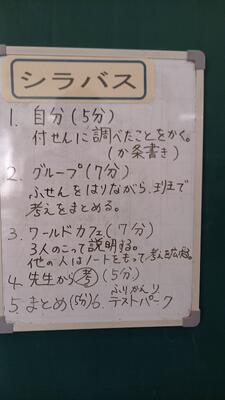 シラバス
1. 自分(5分)
付せんに調べたことをかく。
(か条書き)
2. グループ(7分)
ふせんをはりながら、班で
考えをまとめる。
3. ワールドカフェ(7分)
3人のこって説明する。
他の人はノートをもって考えを広げる。
4. 先生から考(5分)
5. まとめ(5分)6. ふりかえり
テストパーク